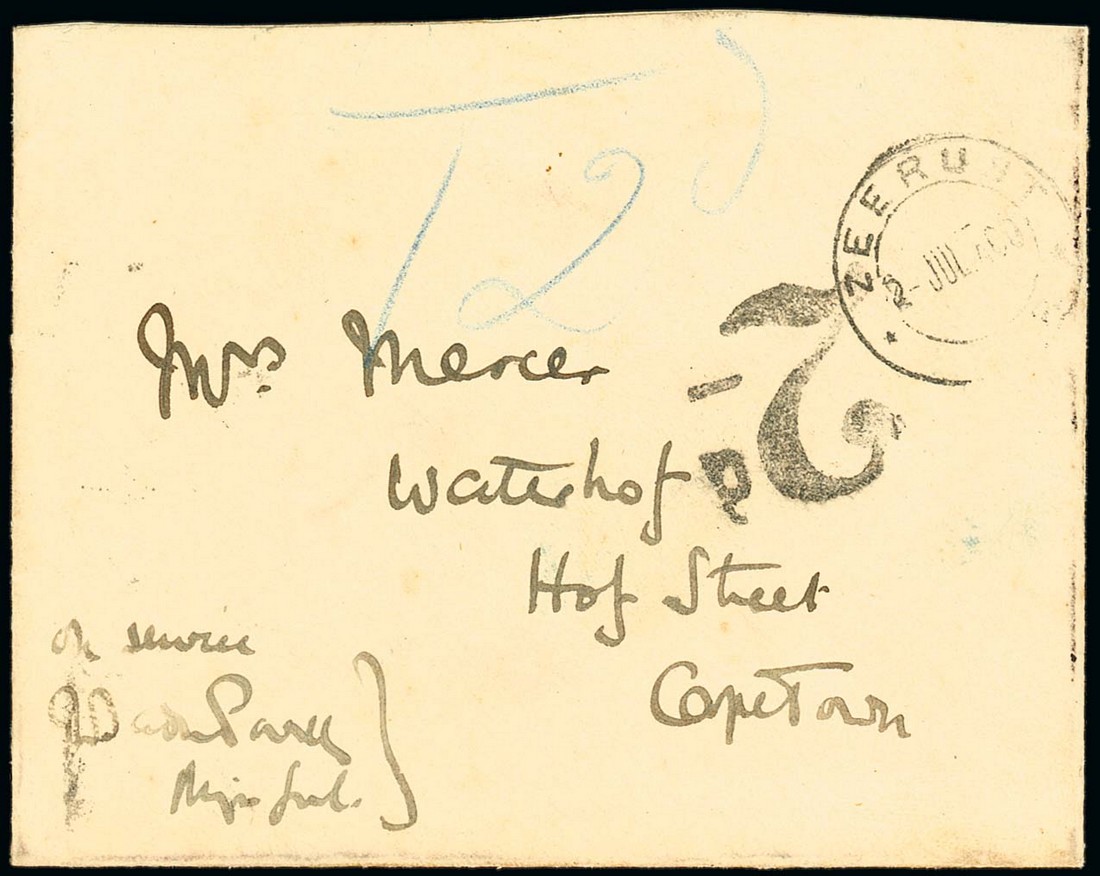 T2d
ZEERUST
2-JUL 00
2
d
Mrs Mercer
Waterhof
Hof Street
CapeTown
on service
Baden Powell
Maj Genl.